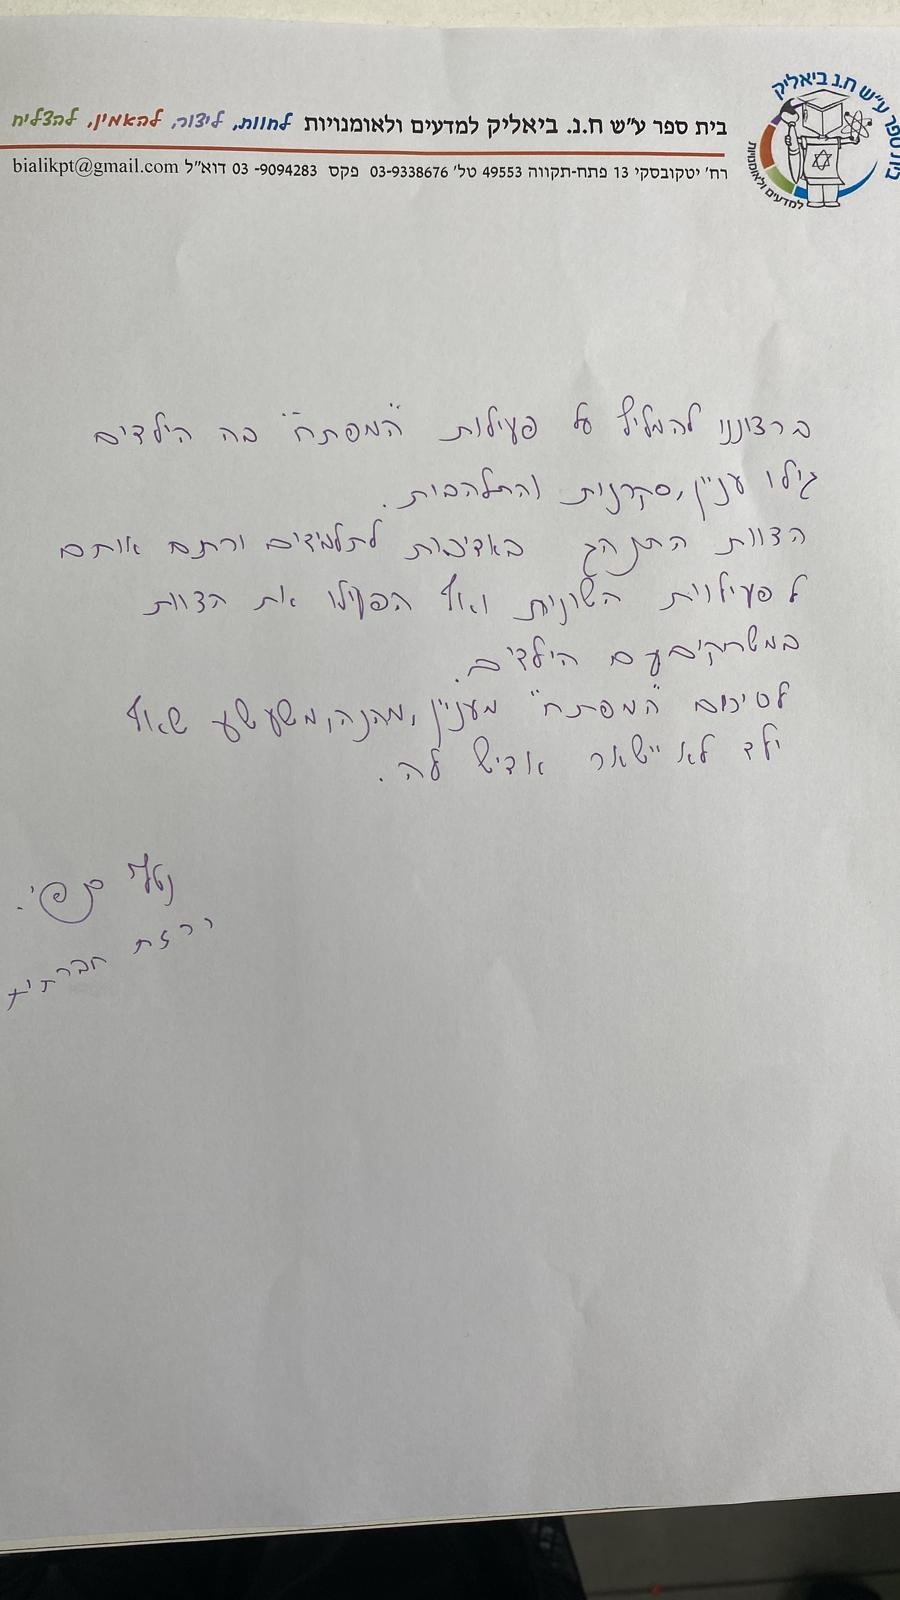 בית ספר ע"ש ח.נ. ביאליק
למדעים ולאומנויות
בית ספר ע"ש ח.נ. ביאליק למדעים ולאומנויות לחוות, ליצור, להאמין, להצליח
רח' יטקובסקי 13 פתח-תקווה 49553 טל' 03-9338676 פקס 03 -9094283 דוא"ל bialikpt@gmail.com
ברצוננו להמליץ על פעילות "המפתח" בה הילדים
גילו עניין, סקרנות והתלהבות.
הצוות התנהג באדיבות לתלמידים ורתם אותם
לפעילוית השונית ואף הפעילו את הצוות
במשחקים עם הילדים.
לסיכום "המפתח" מעניין, מהנה, משעשע שאף
ילד לא יישאר אדיש לה.
רכזת חברתית